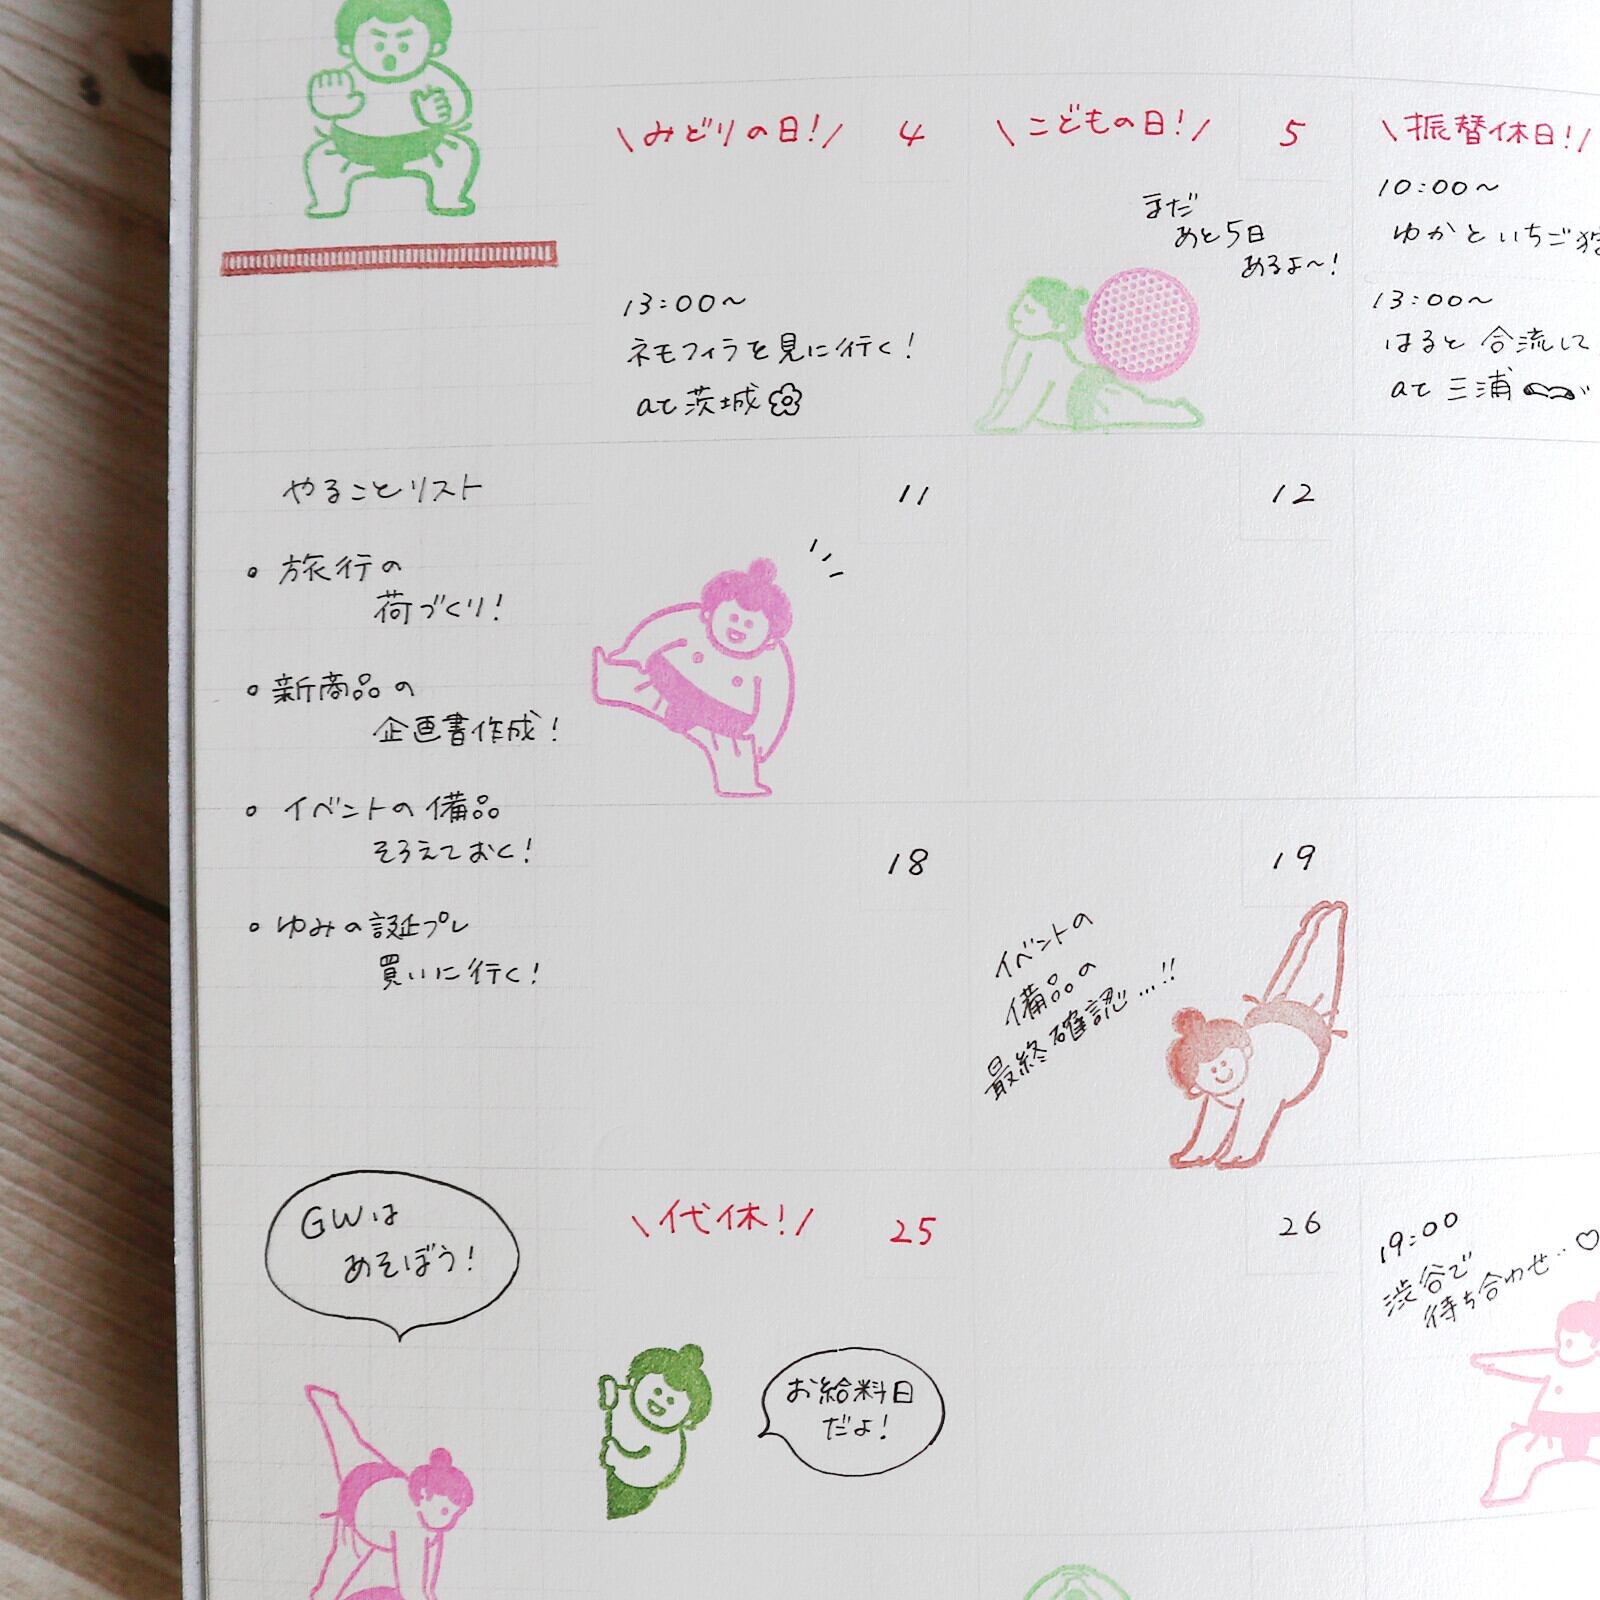 \みどりの日!/ 4
\こどもの日!/ 5
\振替休日!/
13:00～
ネモフィラを見に行く!
at 茨城
まだ
あと5日
あるよ～!
10:00～
ゆかといちご
13:00～
はると合流して
at 三浦
やることリスト
• 旅行の
荷づくり!
• 新商品の
企画書作成!
• イベントの備品
そろえておく!
• ゆみの誕プレ
買いに行く!
11
12
18
19
イベントの
備品の
最終確認…!!
GWは
あそぼう!
\代休!/ 25
お給料日
だよ!
26
19:00
渋谷で
待ち合わせ…♡